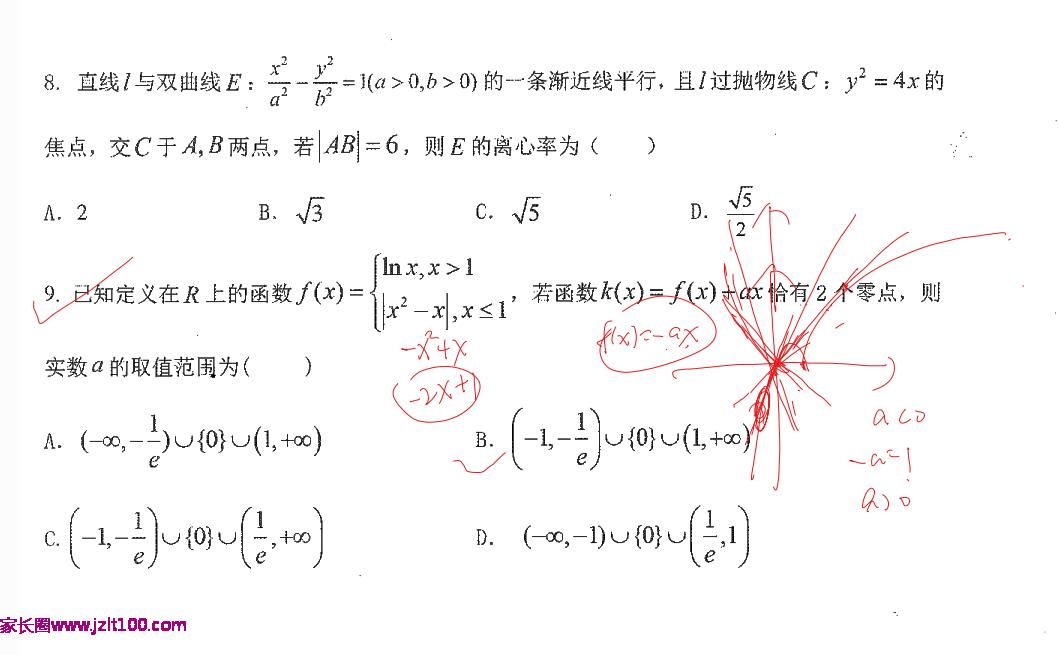 8. 直线l与双曲线E：x²/a² - y²/b² = 1(a>0,b>0) 的一条渐近线平行，且l过抛物线C：y² = 4x的
焦点，交C于A,B两点，若|AB|=6，则E的离心率为（ ）
A. 2 B. √3 C. √5 D. √5/2
9. 已知定义在R上的函数f(x)={ln x, x>1; |x² - x|, x≤1，若函数k(x)= f(x)+ax恰有2个零点，则
-x²+x
f(x)=-ax
实数a的取值范围为( )
-2x+1
A. (-∞,-1/e)∪{0}∪(1,+∞) B. (-1,-1/e)∪{0}∪(1,+∞)
a<0
-a=1
a>0
C. (-1,-1/e)∪{0}∪(1/e,+∞) D. (-∞,-1)∪{0}∪(1/e,1)
家长圈www.jzlt100.com